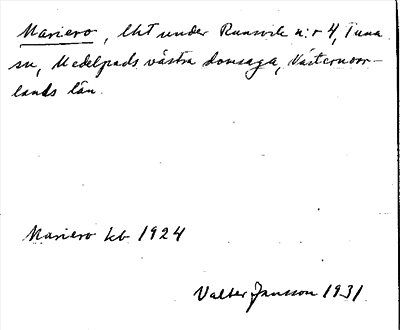 Mariero, lht under Runsvik n:r 4, Tuna
sn, Medelpads västra domsaga, Västernorr-
lands län.
Mariero kb 1924
Valter Jansson 1931